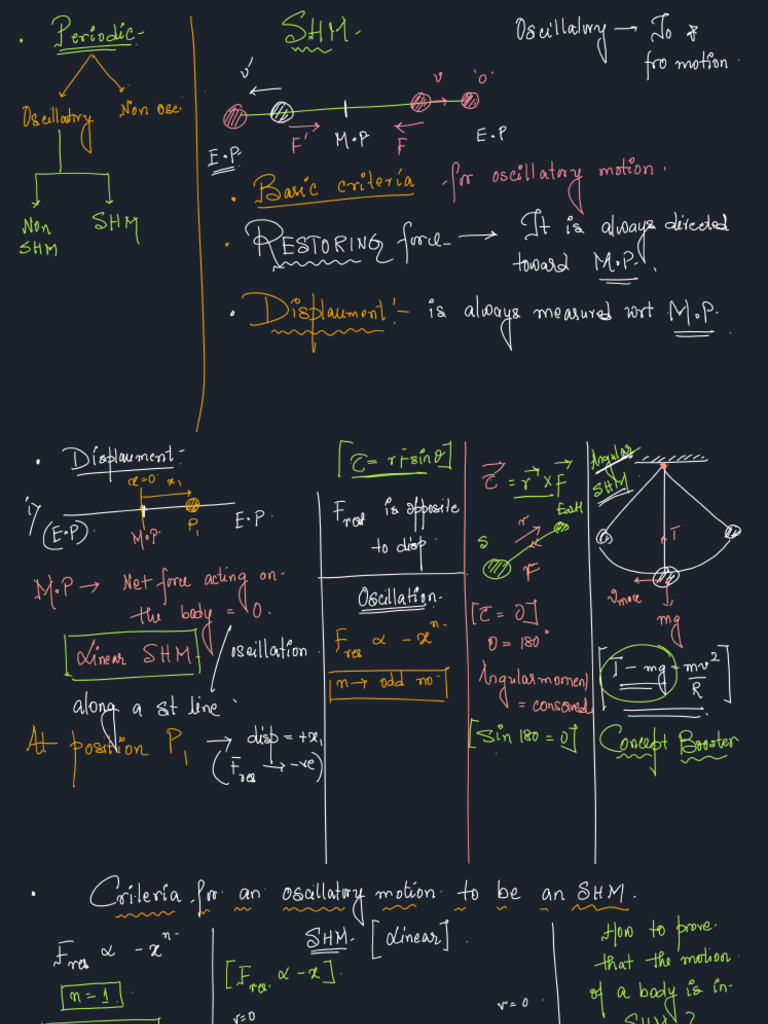 • Periodic-
Oscillatory
Non osci
Non SHM
SHM
SHM-
Oscillatory → To & fro motion
v'
v
'O'
F'
M.P
F
E.P
E.P
• Basic criteria for oscillatory motion.
• RESTORING force → It is always directed toward M.P.
• Displaument:- is always measured wrt M.P.
• Displaument:-
x=0 x₁
i)
(E.P)
M.P
P₁
E.P.
M.P → Net force acting on the body = 0.
Linear SHM
oscillation
along a st line
At position P₁ → disp = +x₁
(Fres → -ve)
[τ = rFsinθ]
Fres is opposite to disp
Oscillation
Fres ∝ -xⁿ
n → odd no.
τ⃗ = r⃗ × F⃗
Earth
r
S
F
[τ = 0]
θ = 180°
Angular momen) = conserved
[Sin 180 = 0]
Angular SHM
T
Vmax
mg
[T - mg = mv²/R]
Concept Booster
• Criteria for an oscillatory motion to be an SHM.
Fres ∝ -xⁿ
n = 1
SHM [Linear]
[Fres ∝ -x]
v=0
v=0
How to prove that the motion of a body is in SHM?